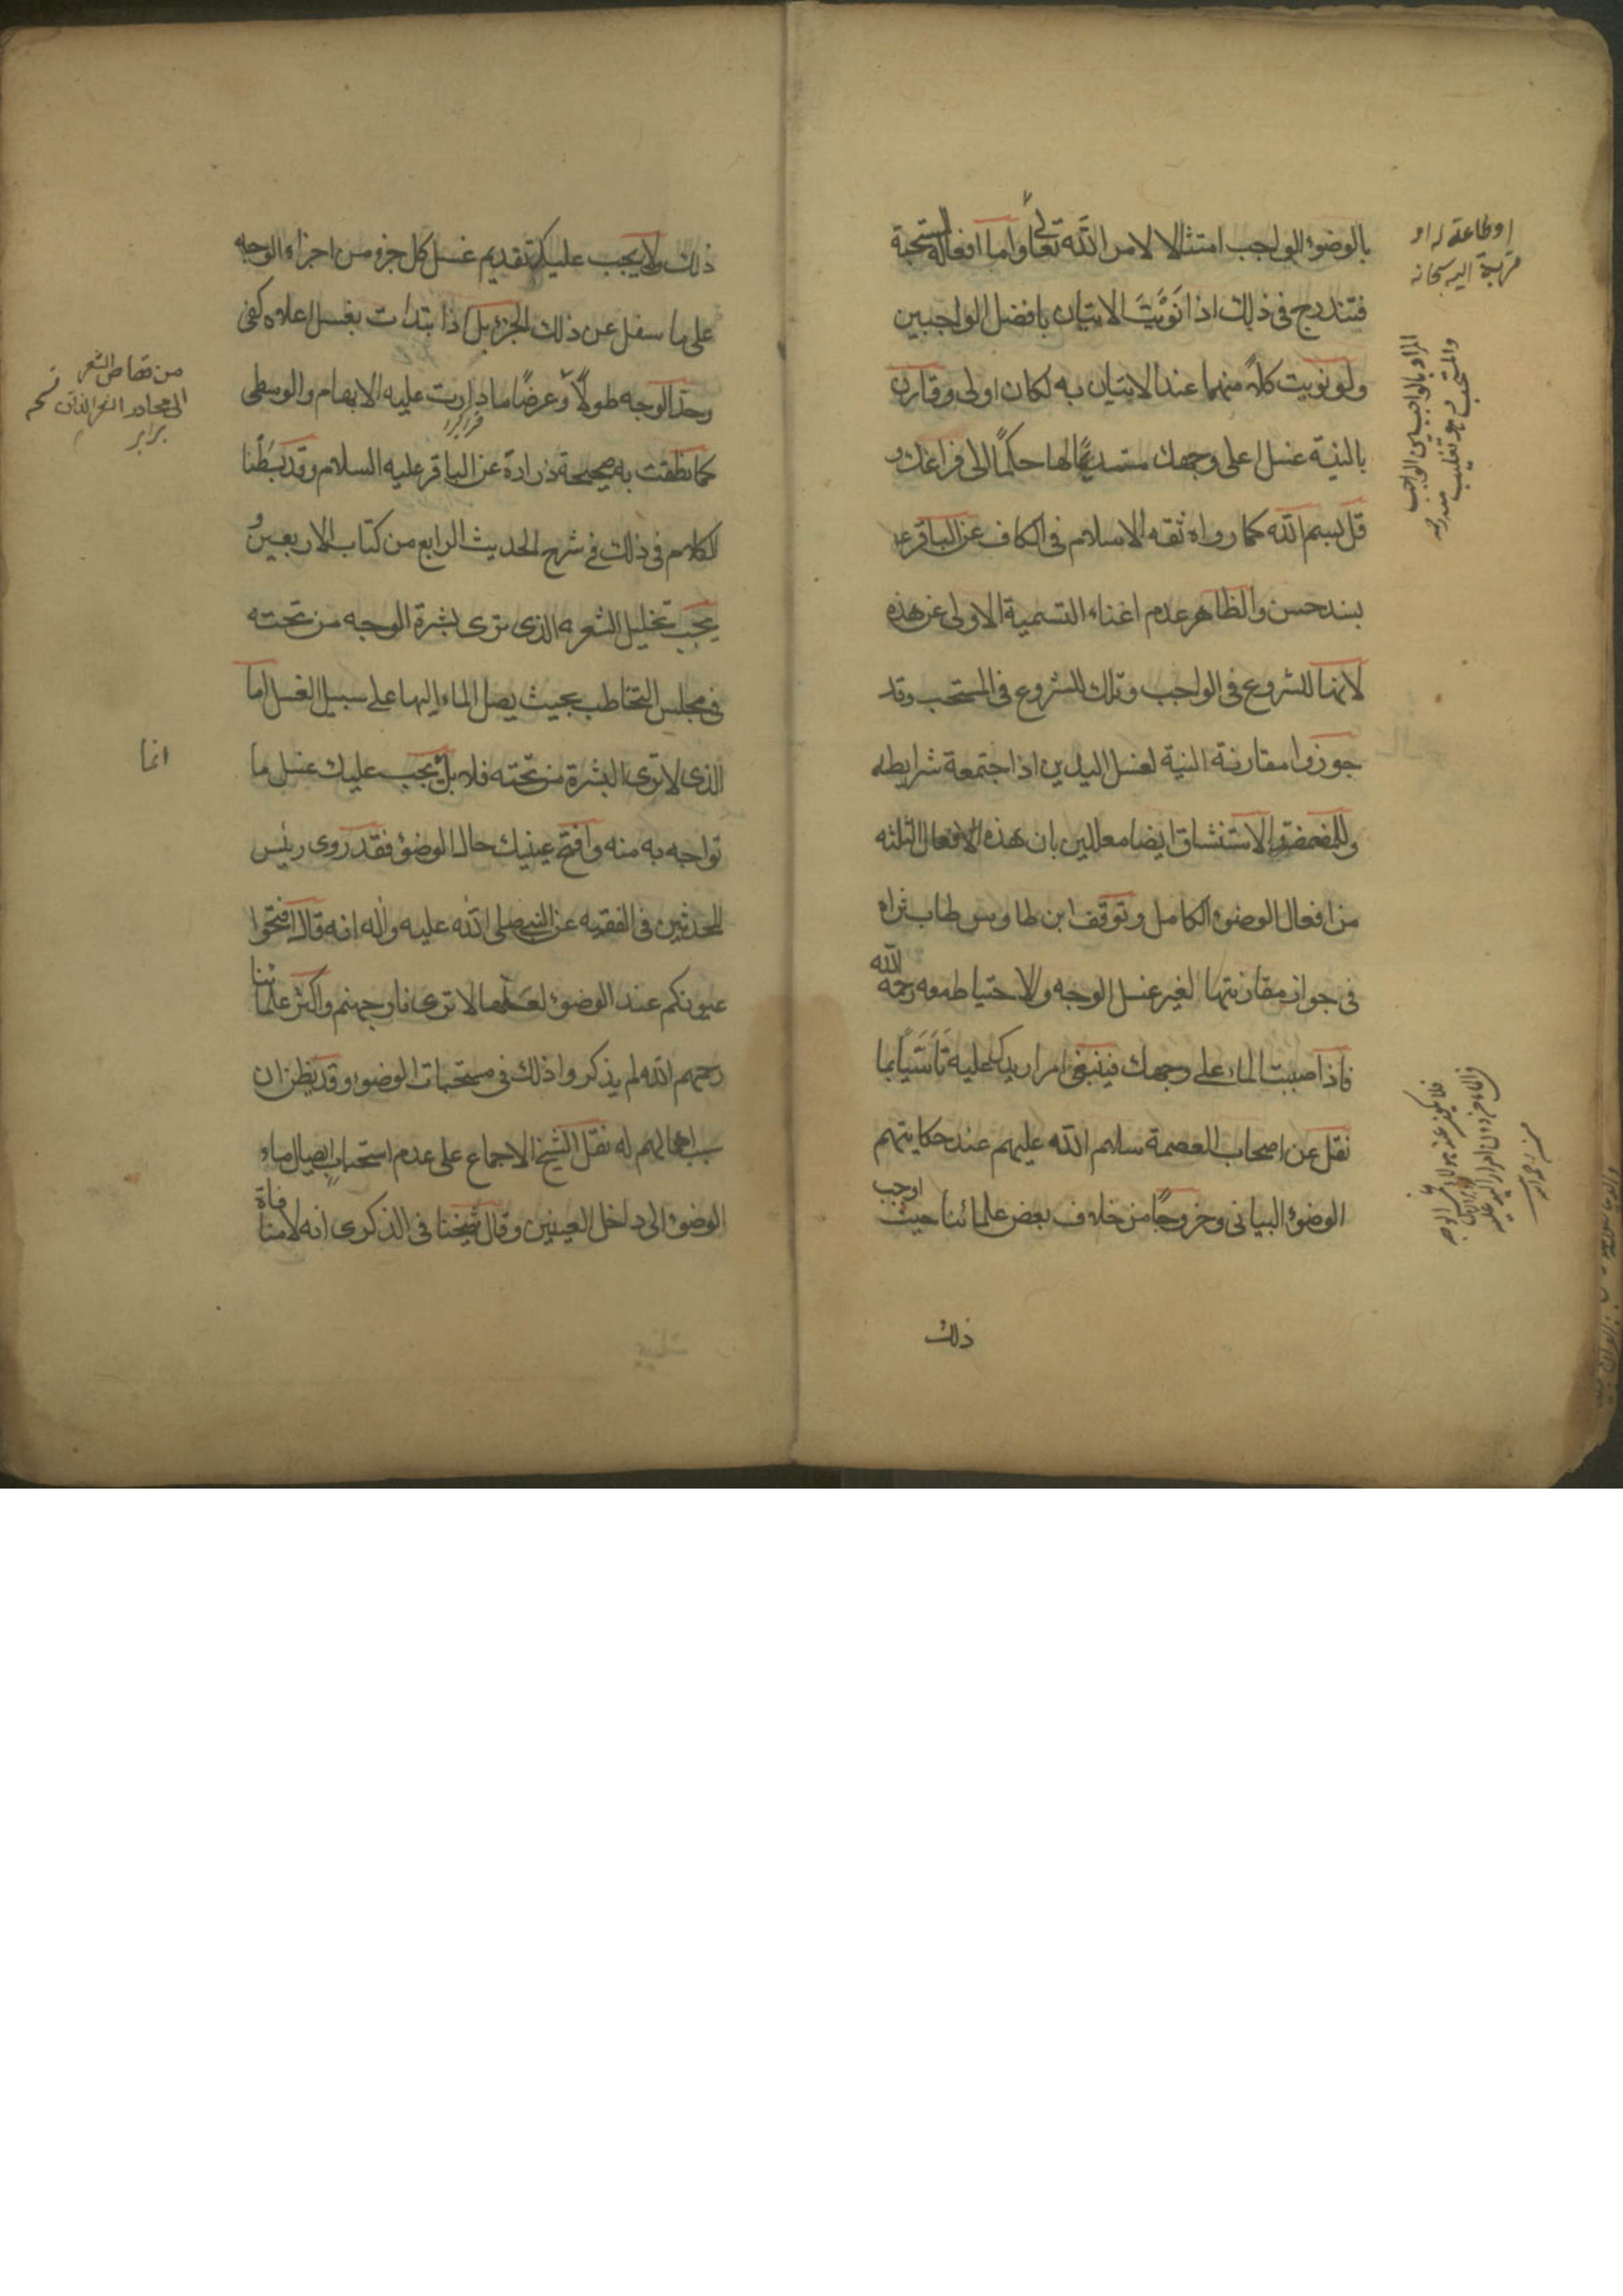 بالوضوء الواجب امتثالا لامر الله تعالى واما افعاله المستحبة
فتندرج في ذلك اذا نَوَيْتَ الاتيان بافضل الواجبين
ولو نويت كلاً منهما عند الاتيان به لكان اولى وقارن
بالنية غسل اعلى وجهك مستديمًا لها حكمًا الى فراغك و
قل بسم الله كما رواه ثقه الاسلام في الكاف عن الباقر ع
بسند حسن والظاهر عدم اغناء التسمية الاولى عن هذه
لانها للشروع في الواجب وتلك للشروع في المستحب وقد
جوزوا مقارنة النية لغسل اليدين اذا جتمعة شرايطه
وللمضمضة والاستنشاق ايضا معللين بان هذه الافعال الثلثه
من افعال الوضوء الكامل وتوقف ابن طاوس طاب ثراه
في جواز مقارنتها لغير غسل الوجه والاحتياط معه رحمه الله
فاذا صببت الماء على وجهك فينبغي امرار يدك عليه تَأَسِّيًا بما
نقل عن اصحاب العصمة سلام الله عليهم عند حكايتهم
الوضوء البياني وخروجًا من خلاف بعض علمائنا حيث اوجب
ذلك
او طاعة له او
قربة اليه سبحانه
المراد بالواجبين الواجب
والمستحب فهو تغليب
منه ره
ذلك ولا يجب عليك تقديم غسل كل جزء من اجزاء الوجه
على ما سفل عن ذلك الجزء بل اذا بتدات بغسل اعلاه كفى
وحدّ الوجه طولًا وعرضًا ما دارت عليه الابهام والوسطى
كما نطقت به صحيحة زرارة عن الباقر عليه السلام وقد بَسَطْنا
الكلام في ذلك في شرح الحديث الرابع من كتاب الاربعين و
يجب تخليل الشعر الذي ترى بشرة الوجه من تحته
في مجلس التخاطب بحيث يصل الماء اليها على سبيل الغسل اما
الذي لا ترى البشرة من تحته فلا بل يجب عليك غسل ما
تواجه به منه وافتح عينيك حال الوضوء فقد روى رئيس
المحدثين في الفقيه عن النبي صلى الله عليه واله انه قال افتحوا
عيونكم عند الوضوء لعلها لا ترى نار جهنم واكثر علمائنا
رحمهم الله لم يذكروا ذلك في مستحبات الوضوء وقد يظن ان
سبب اهمالهم له نقل الشيخ الاجماع على عدم استحباب ايصال ماء
الوضوء الى داخل العينين وقال شيخنا في الذكرى انه لا منافاة
من قصاص الشعر
الى محادر الذقن
برابر
انما